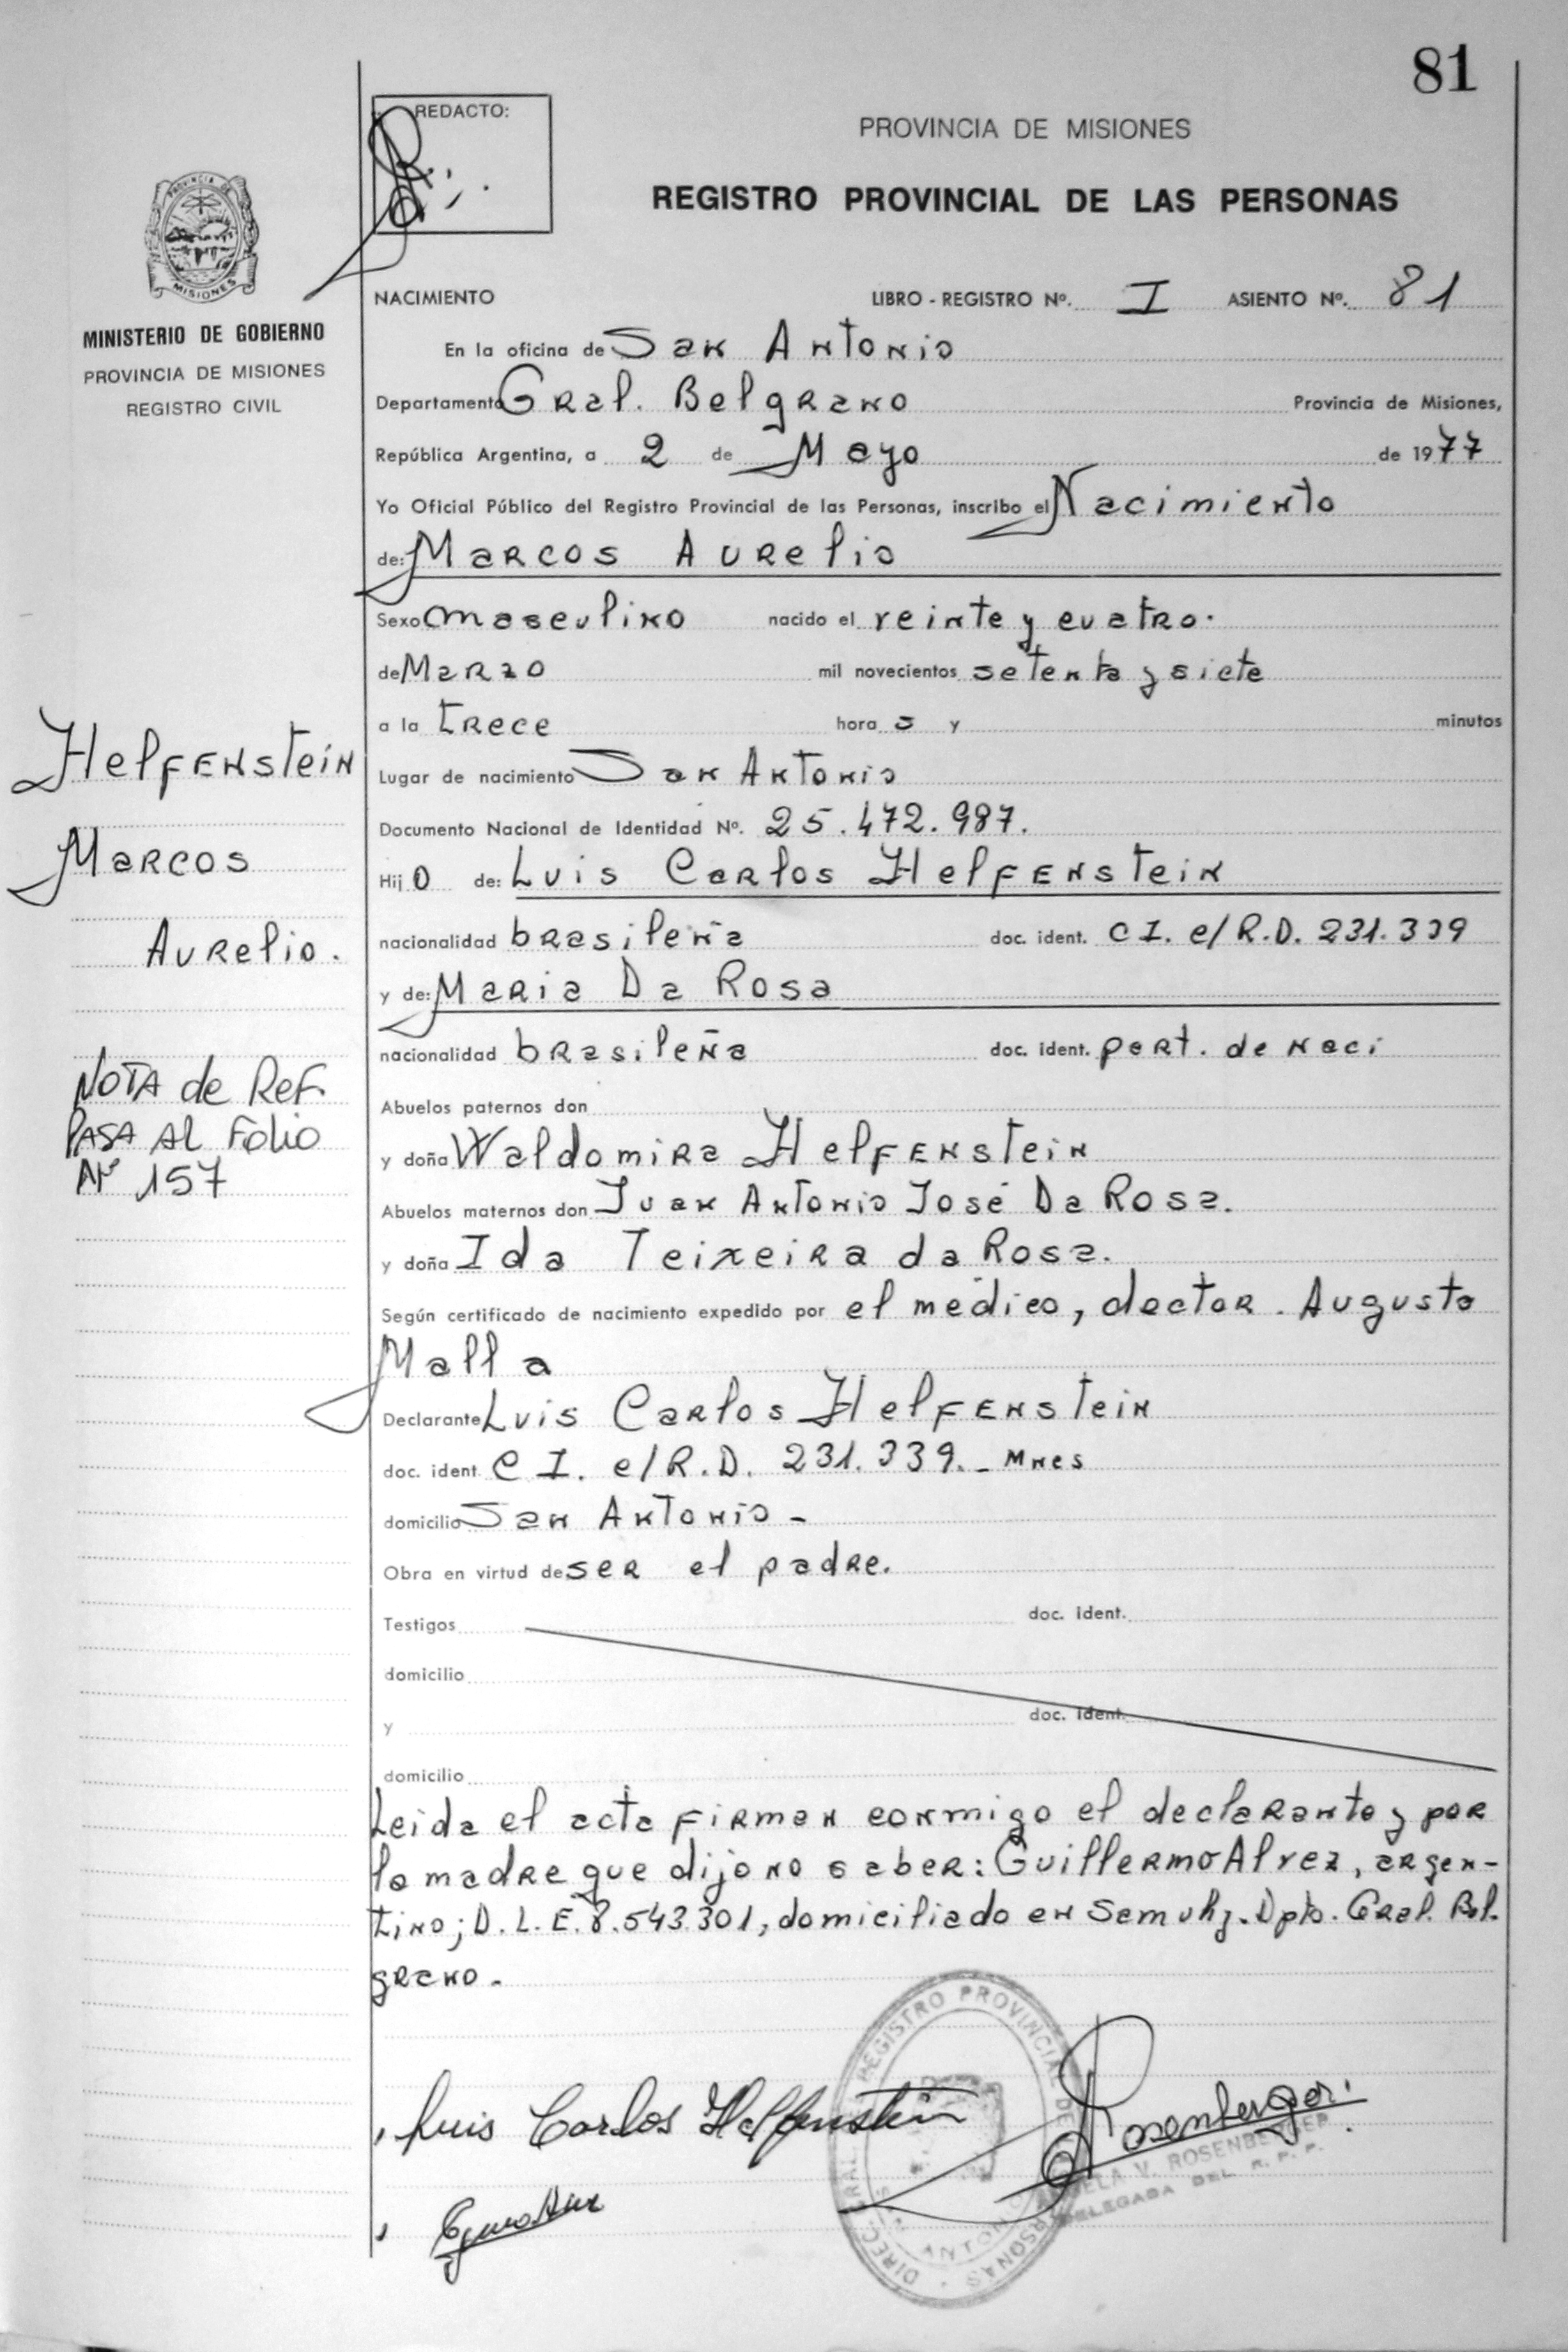 81
REDACTO:
PROVINCIA DE MISIONES
REGISTRO PROVINCIAL DE LAS PERSONAS
PROVINCIA DE
MISIONES
MINISTERIO DE GOBIERNO
PROVINCIA DE MISIONES
REGISTRO CIVIL
NACIMIENTO LIBRO - REGISTRO Nº. I ASIENTO Nº. 81
En la oficina de San Antonio
Departamento Gral. Belgrano Provincia de Misiones,
República Argentina, a 2 de Mayo de 1977
Yo Oficial Público del Registro Provincial de las Personas, inscribo el Nacimiento
de: Marcos Aurelio
Sexo masculino nacido el veinte y cuatro.
de Marzo mil novecientos setenta y siete
a la trece hora s y minutos
Lugar de nacimiento San Antonio
Documento Nacional de Identidad Nº. 25.472.987.
Hijo de: Luis Carlos Helfenstein
nacionalidad brasileña doc. ident. C I. e/ R.D. 231.339
y de: Maria Da Rosa
nacionalidad brasileña doc. ident. part. de naci
Abuelos paternos don
y doña Waldomira Helfenstein
Abuelos maternos don Juan Antonio José Da Rosa.
y doña Ida Teixeira da Rosa.
Según certificado de nacimiento expedido por el médico, doctor. Augusto
Malla
Declarante Luis Carlos Helfenstein
doc. ident. C I. e/ R.D. 231.339. - Mnes
domicilio San Antonio -
Obra en virtud de ser el padre.
Testigos doc. ident.
domicilio
y doc. ident.
domicilio
Leida el acta firman conmigo el declarante y por
la madre que dijo no saber: Guillermo Alvez, argen-
tino; D. L. E. 8.543.301, domiciliado en Dpto. Gral. Bel.
grano.
Helfenstein
Marcos
Aurelio.
NOTA de Ref.
PASA Al Folio
Nº 157
Luis Carlos Helfenstein
Rosenberger
V. ROSENBERGER
DELEGADA DEL R. P. P.
REGISTRO PROVINCIAL DE